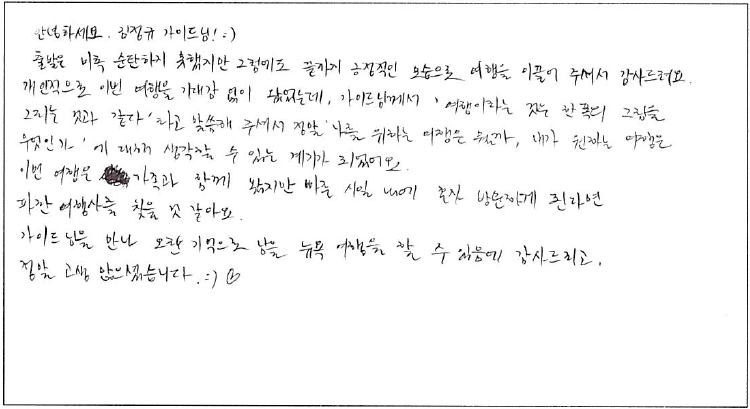 안녕하세요. 김정규 가이드님! :)
출발은 비록 순탄하지 못했지만 그럼에도 끝까지 긍정적인 모습으로 여행을 이끌어 주셔서 감사드려요.
개인적으로 이번 여행을 기대감 없이 왔었는데, 가이드님께서 '여행이라는 것은 한 폭의 그림을
그리는 것과 같다' 라고 말씀해 주셔서 정말 '나를 위하는 여행은 뭔가, 내가 원하는 여행은
무엇인가' 에 대해 생각할 수 있는 계기가 되었어요.
이번 여행은 가족과 함께 왔지만 빠른 시일 내에 혼자 방문하게 된다면
파란 여행사를 찾을 것 같아요.
가이드님을 만나 오랜 기억으로 남을 뉴욕 여행을 할 수 있음에 감사드리고,
정말 고생 많으셨습니다. :)